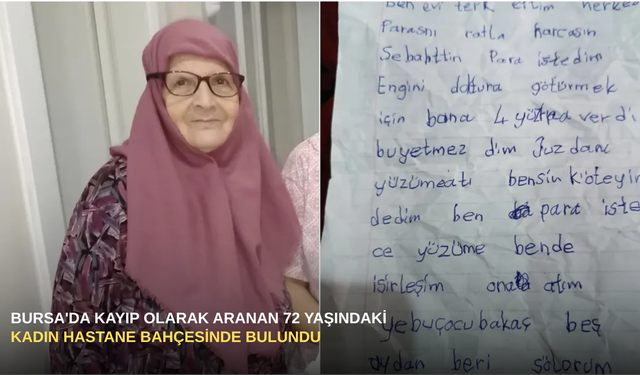 ben evi terk ettim herkes
Parasnı ratla harcasın
Sebahttin Para istedim
Engini doktura götürmek
için bana 4 yüzlira verdi
buyetmez dim Juzdanı
yüzümeattı bensin köteyin
dedim ben para iste
ce yüzüme bende
isirleşim atım
yebuçocubakaç beş
aydan beri
BURSA'DA KAYIP OLARAK ARANAN 72 YAŞINDAKİ
KADIN HASTANE BAHÇESİNDE BULUNDU